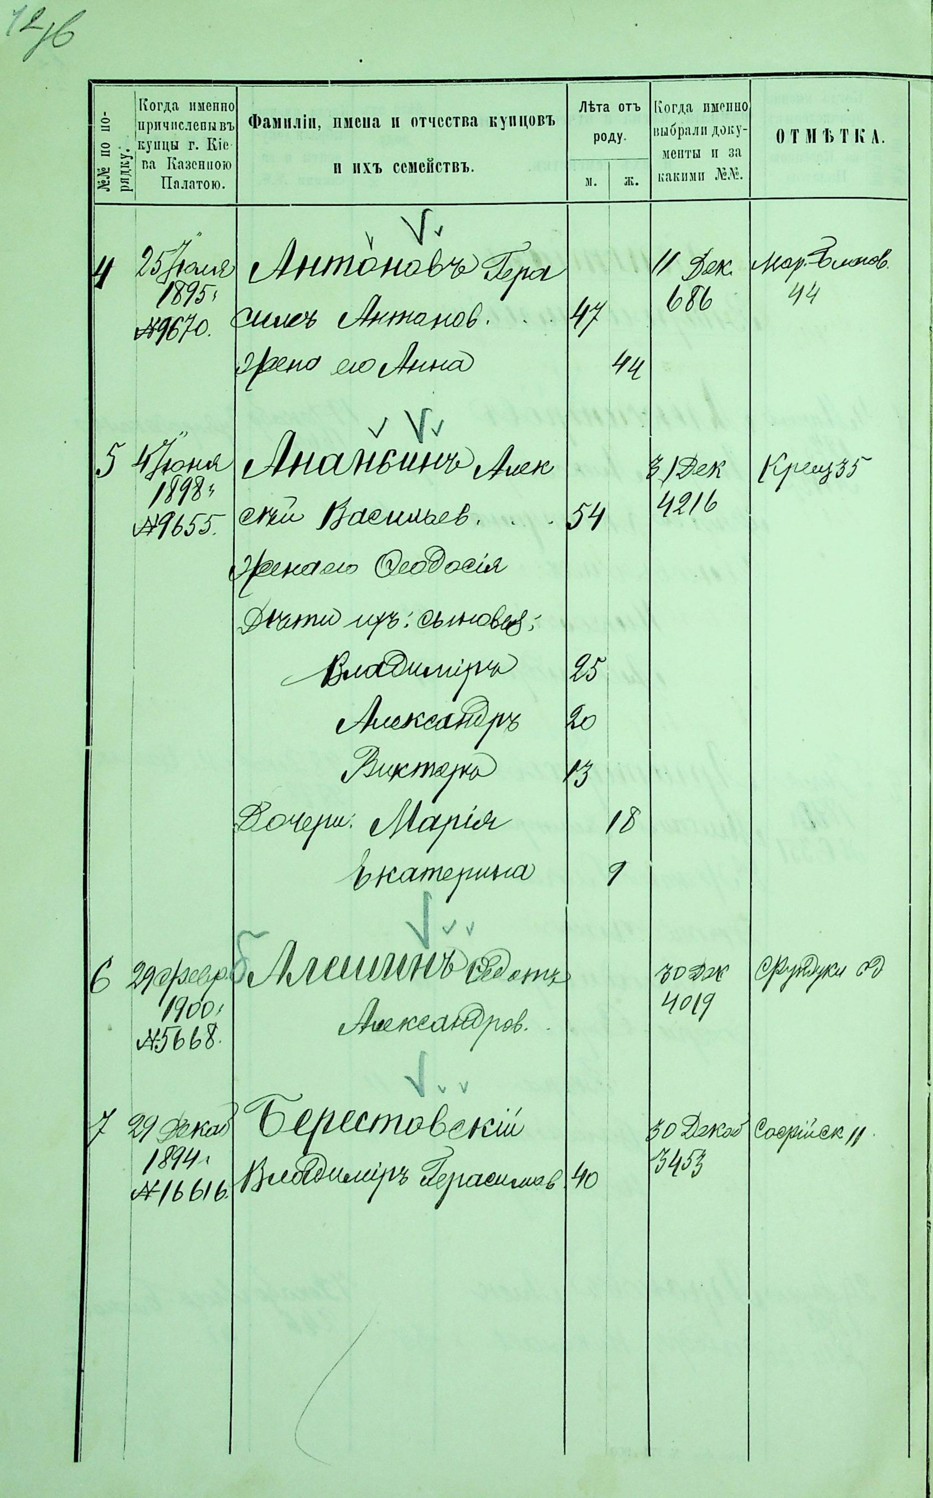 №№ по по-
рядку.
Когда именно
причислены въ
купцы г. Кіе-
ва Казенною
Палатою.
Фамиліи, имена и отчества купцовъ
и ихъ семействъ.
Лѣта отъ
роду.
м.
ж.
Когда именно
выбрали доку-
менты и за
какими №№.
ОТМѢТКА.
4 25 Антоновъ Гера 11 Дек.
1895 686 44
№9670. симъ Антонов. 47
жена его Анна 44
5 4 Іюня Ананьинъ Алек 31 Дек Крещ 35
1898 4216
№9655. сѣй Васильев. 54
жена его Ѳеодосія
Дѣти ихъ: сыновья:
Владиміръ 25
Александръ 20
Викторъ 13
Дочери: Марія 18
Екатерина 9
6 29 Февр Алешинъ Ѳедотъ 30 Дек
1900 4019
№5668. Александров.
7 29 Декаб Берестовскій 30 Декаб Софійск 11.
1894 3453
№16616. Владиміръ Герасимов. 40